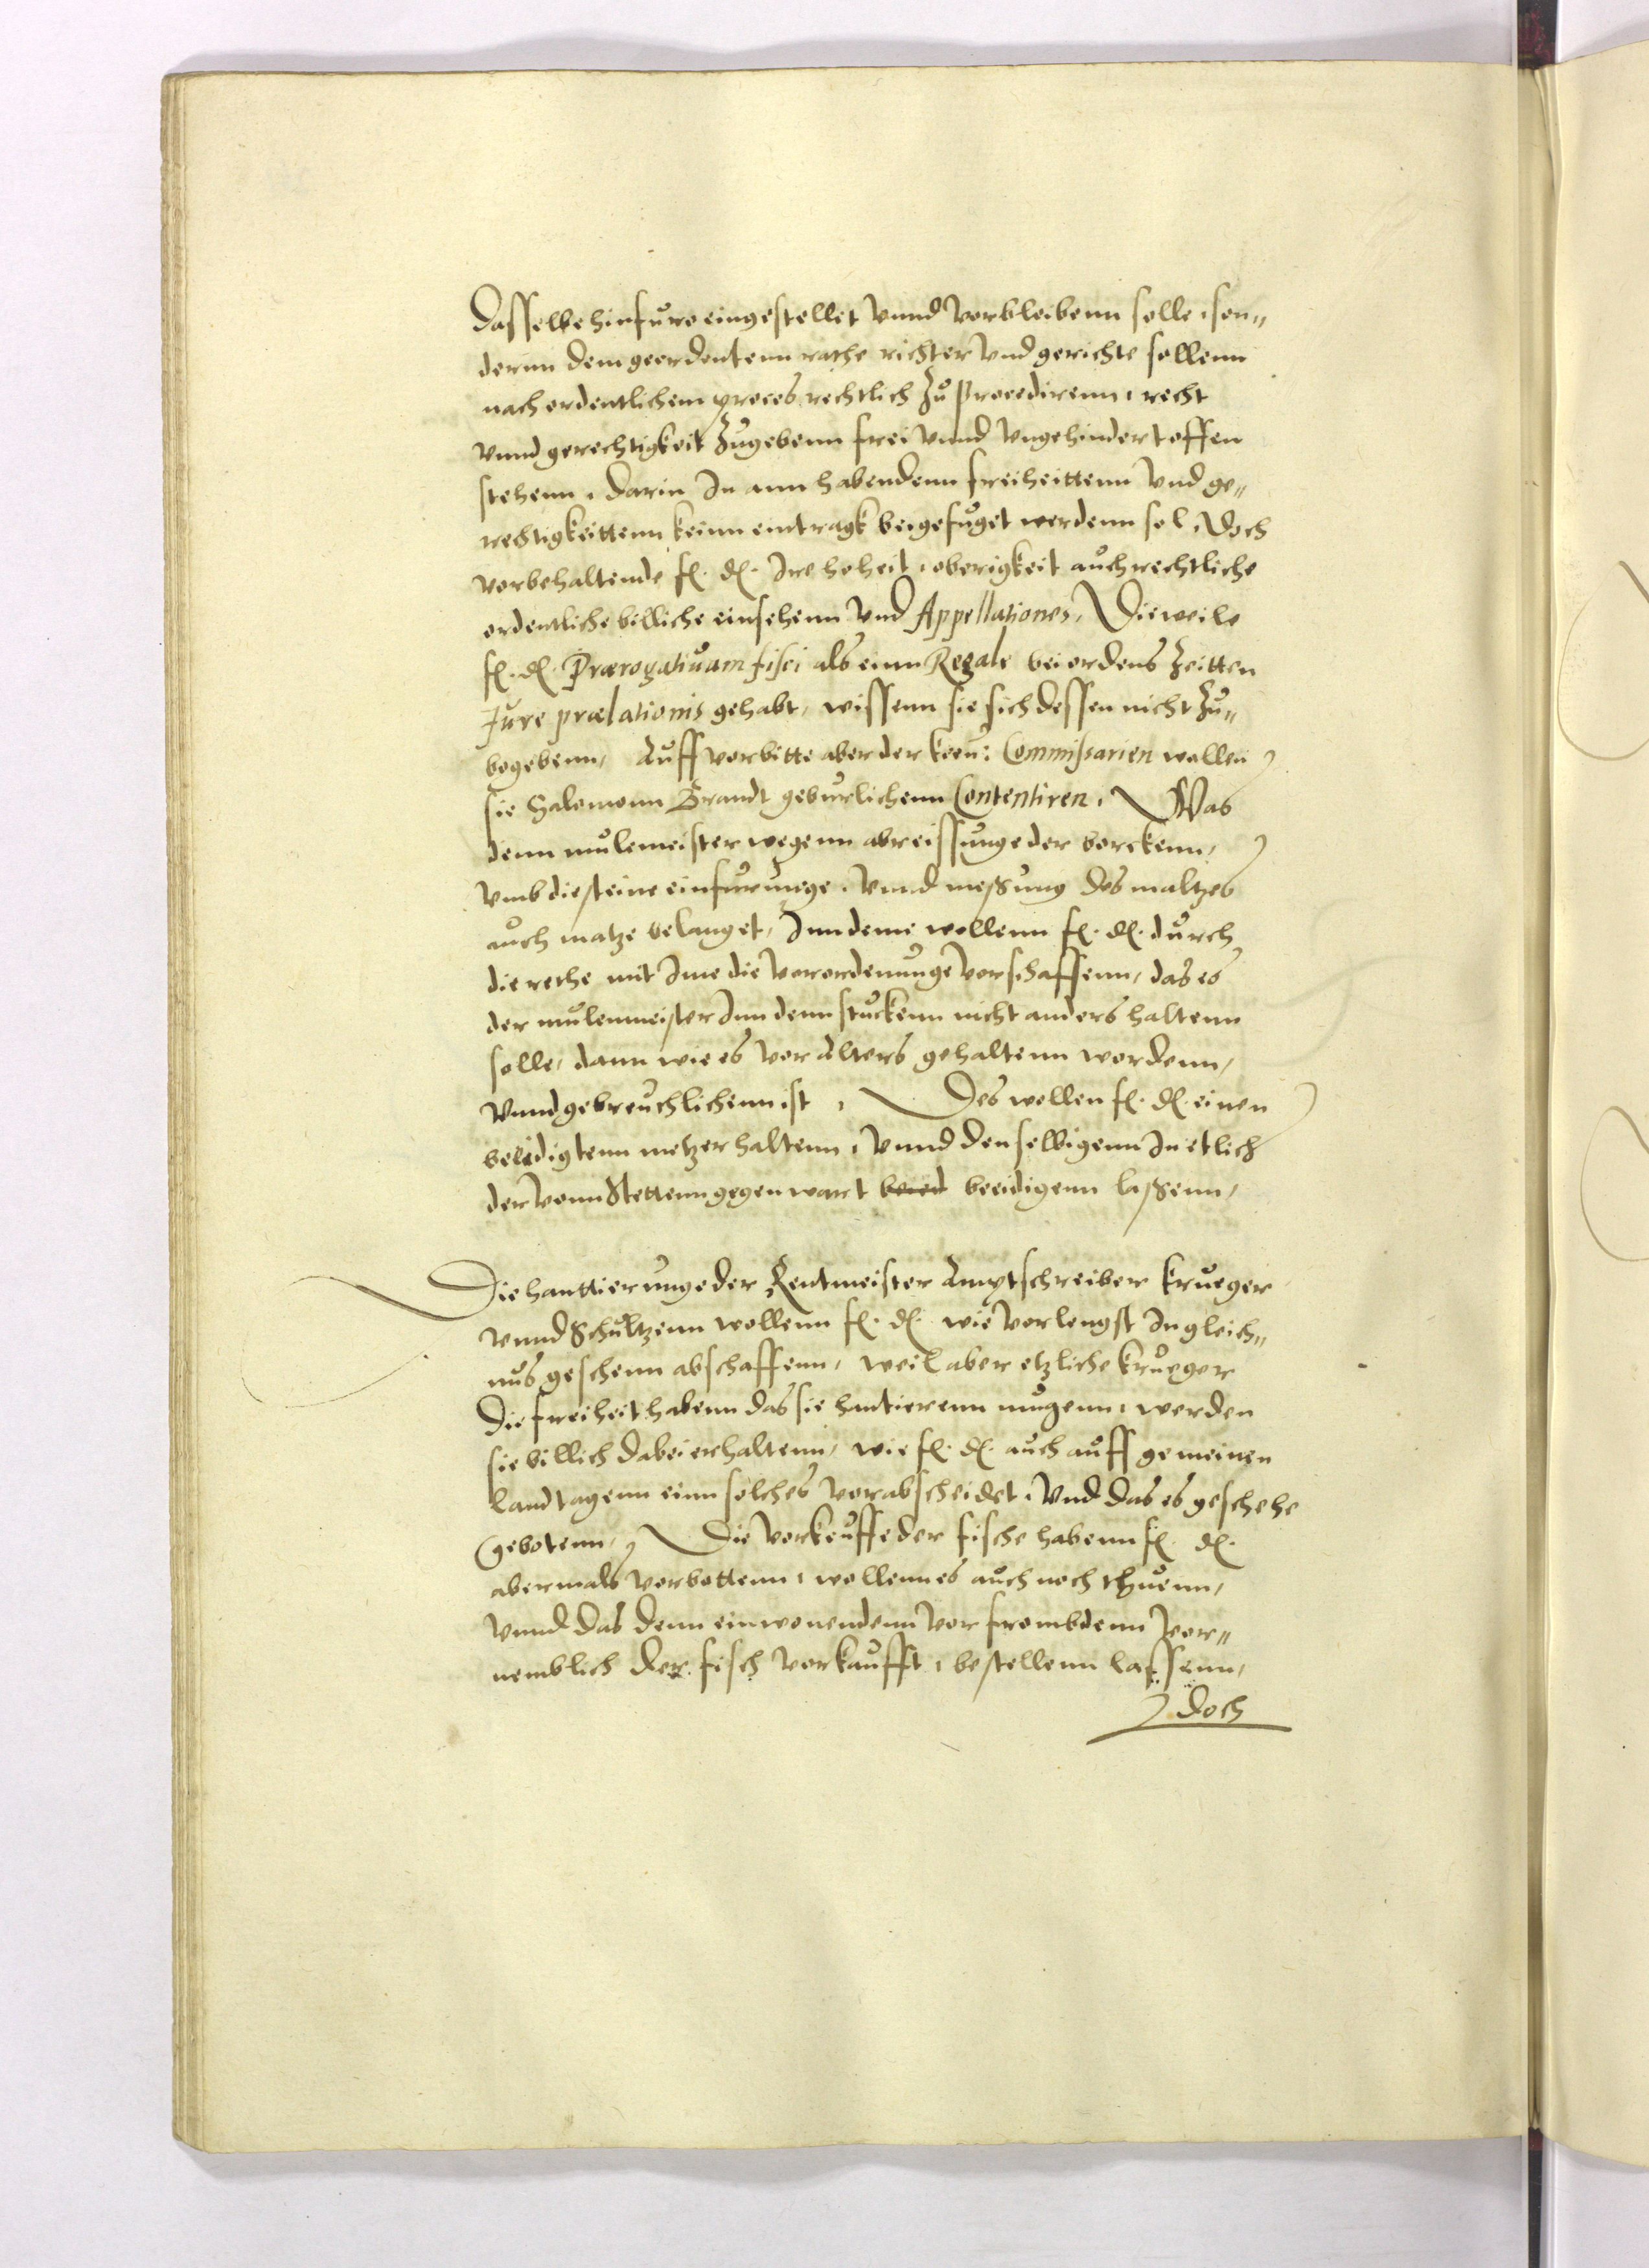 Dasselbe hinfuro eingestellet vnnd vorbleibenn solle, son„
derun dem geordentenn rathe richter vnd gerichte sollenn
nach ordentlichem proces rechtlich zu procedirenn, recht
vnnd gerechtigkeit zugebenn frei vnnd vngehindert offen
stehenn, darin In ann habendenn freiheittenn vnd ge„
rechtigkeittenn keinn eintragk beigefuget werdenn sol, Doch
vorbehaltende f. d. Ire hoheit, oberigkeit auch rechtliche
ordentliche billiche einsehenn vnd Appellationes, Dieweile
f. d. Prærogatiuam fisci als einn Regale bei ordens zeitten
Jure prælationis gehabt, wissenn sie sich dessen nicht zu„
begebenn, Auff vorbitte aber der kön: Commissarien wollen
sie Salomonn Brandt geburlichenn Contentiren, Was
denn mulemeister wegenn abreissunge der borckenn,
vmb die steine einfurunge, vnnd messung des maltzes
auch matze belanget, Inn deme wollenn f. d. durch
die rethe mit Ime die vorordenunge vorschaffenn, das es
der mulenmeister Inn denn stuckenn nicht anders haltenn
solle, dann wie es vor alters gehaltenn wordenn,
vnnd gebreuchlichenn ist, Des wollen f. d. einen
beeidigtenn metzer haltenn, vnnd denselbigenn In etlich
der vonn Stettenn gegenwart beeid beeidigenn lassenn,
Die hanttierunge der Rentmeister Amptschreiber krueger
vnnd Schultzenn wollenn f. d. wie vorlengst In gleich„
nus geschenn abschaffenn, weil aber etzliche krueger
Die freiheit habenn das sie hantierenn mugenn, werden
sie billich dabei erhaltenn, wie f. d. auch auff gemeinen
landtagenn einn solches vorabscheidet, vnd das es geschehe
gebotenn, Die vorkeuffe der fische habenn f. d.
abermals vorbottenn, wollenn es auch noch thuenn,
vnnd das denn einwonendenn vor frembdenn vor„
nemblich der fisch vorkaufft, bestellenn lassenn,
doch